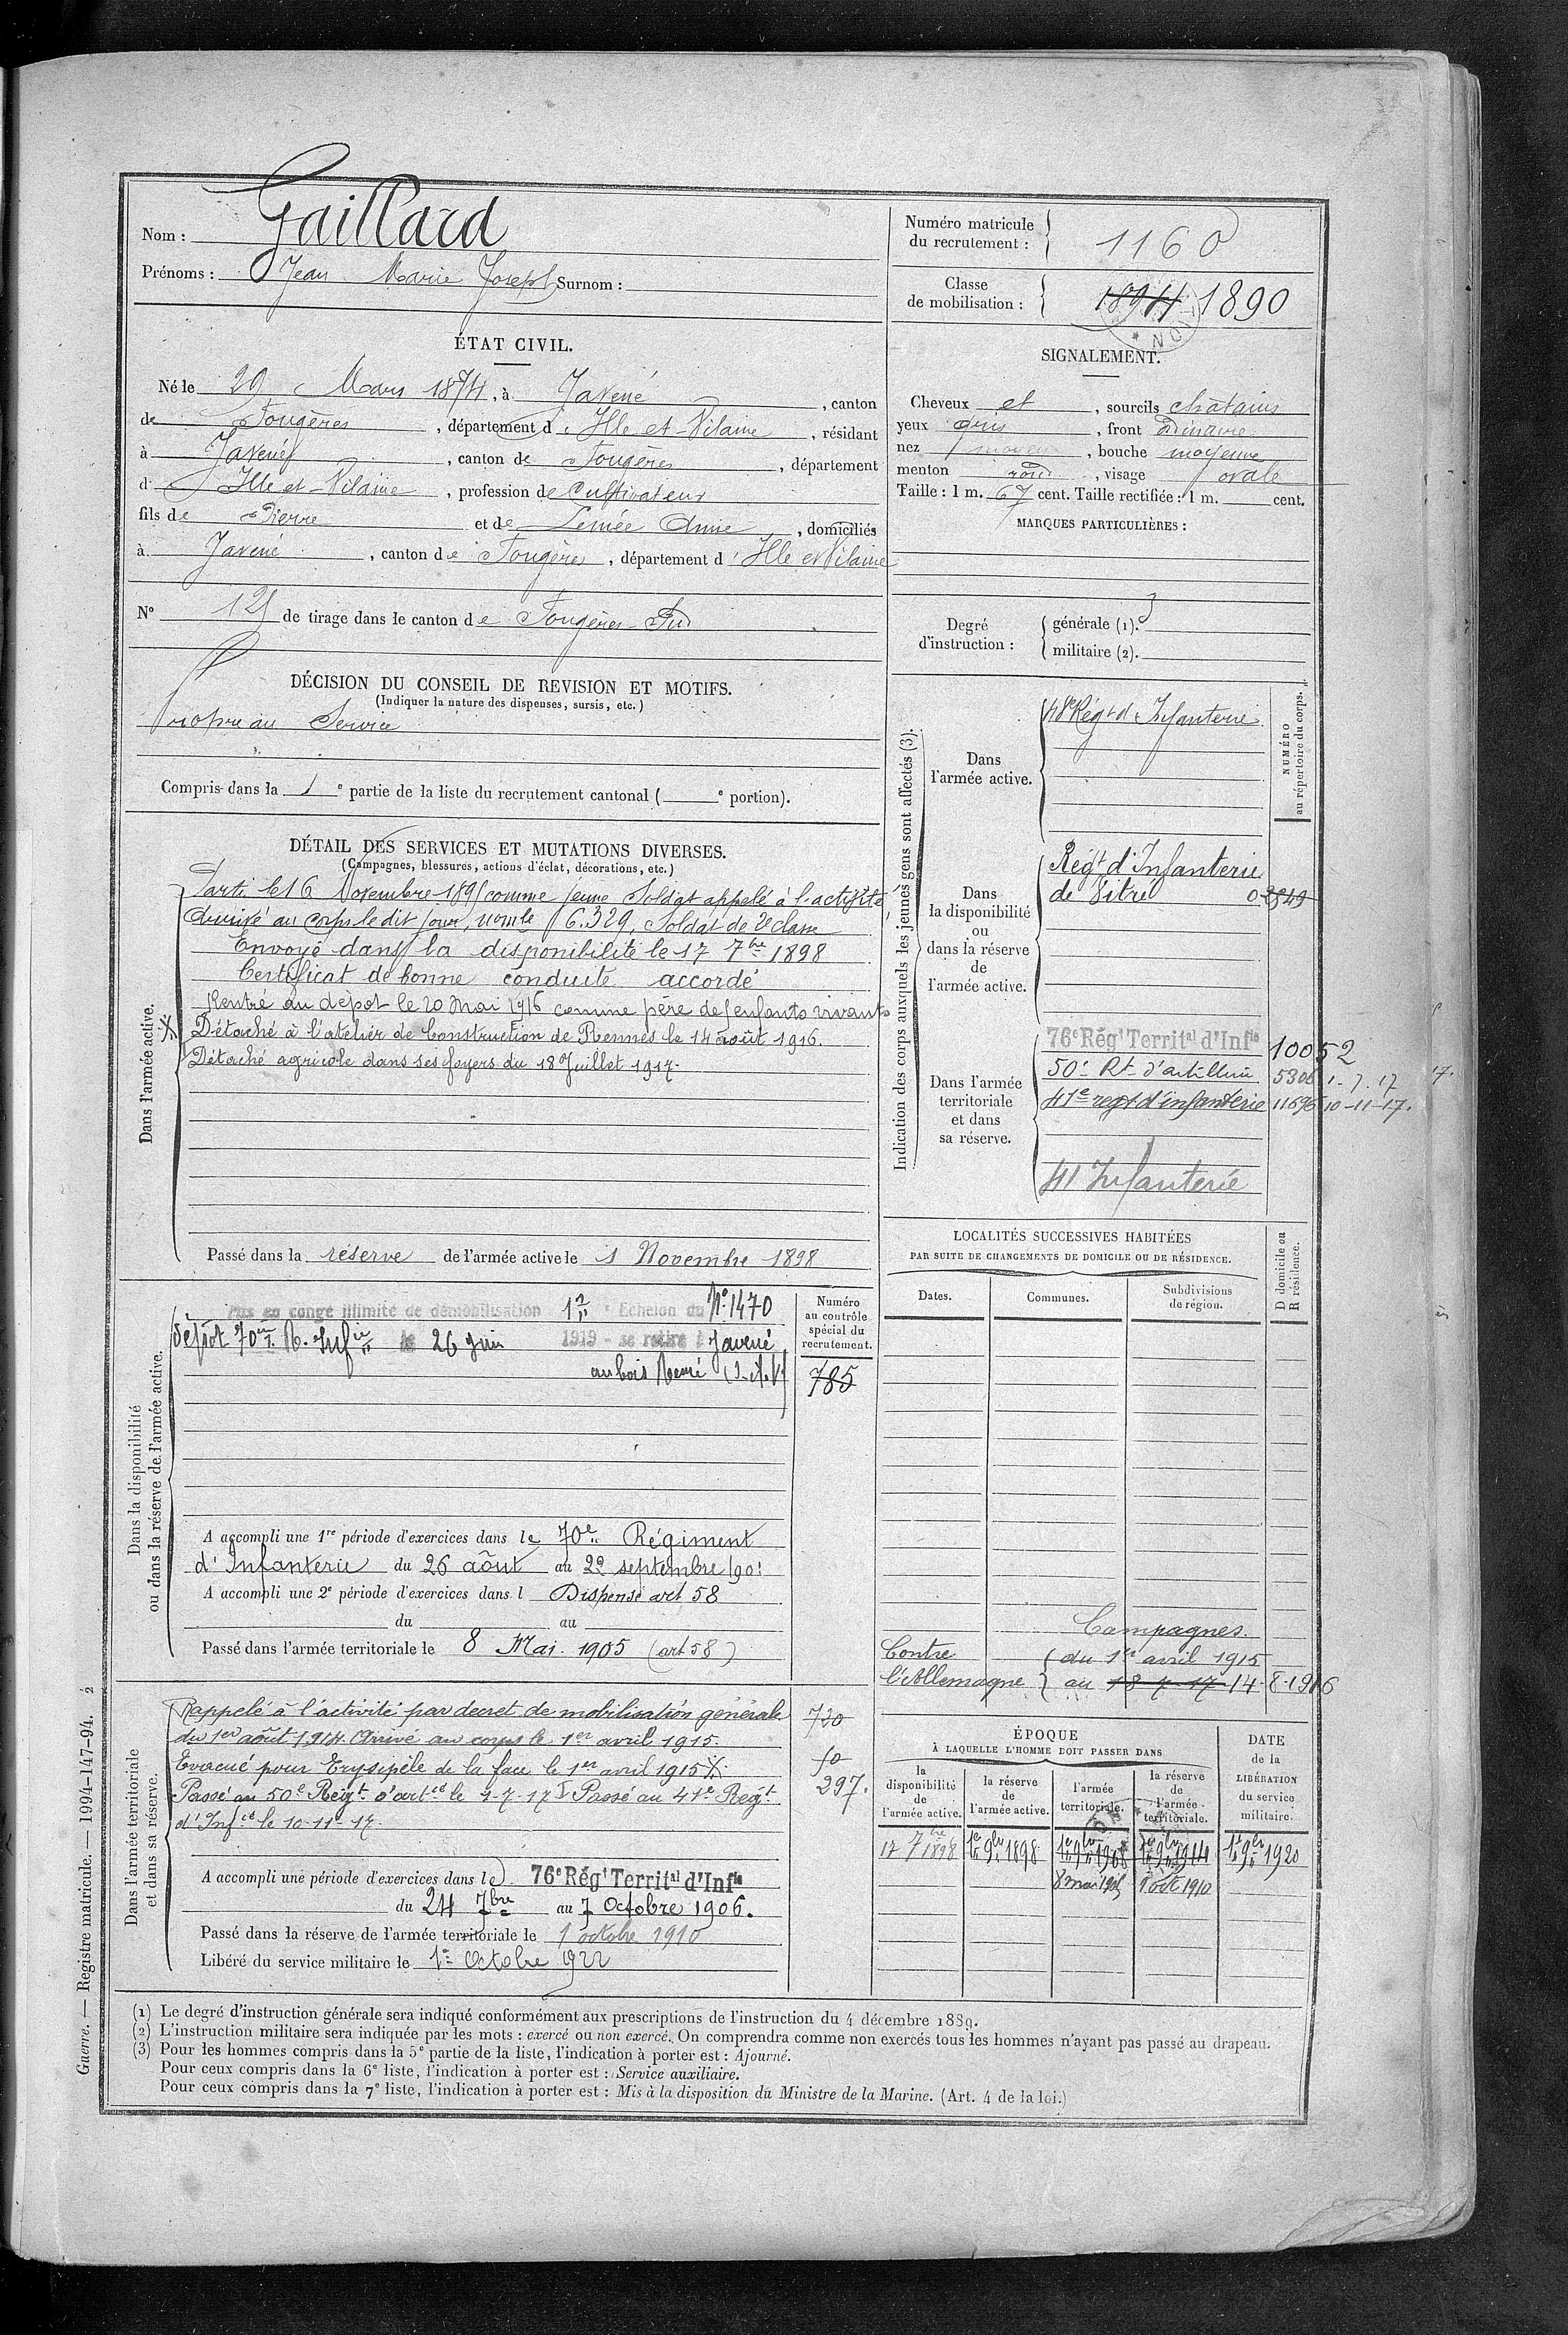 Nom : Gaillard
Prénoms : Jean Marie Joseph Surnom :
ÉTAT CIVIL.
Né le 29 Mars 1874, à Javené, canton
de Fougères, département d'Ille et-Vilaine, résidant
à Javené, canton de Fougères, département
d'Ille et-Vilaine, profession de Cultivateur
fils de Pierre et de Lemée Anne, domiciliés
à Javené, canton de Fougères, département d'Ille et Vilaine
N° de tirage dans le canton de Fougères-Sud
DÉCISION DU CONSEIL DE REVISION ET MOTIFS.
(Indiquer la nature des dispenses, sursis, etc.)
Propre au Service
Compris dans la 1e partie de la liste du recrutement cantonal ( e portion).
DÉTAIL DES SERVICES ET MUTATIONS DIVERSES.
(Campagnes, blessures, actions d'éclat, décorations, etc.)
Dans l'armée active.
Parti le 16 Novembre 1895 comme jeune Soldat appelé à l'activité
Arrivé au corps le dit jour, n° mle 6.329, Soldat de 2e classe
Envoyé dans la disponibilité le 17 7bre 1898
Certificat de bonne conduite accordé
Rentré au dépot le 20 Mai 1916 comme père de enfants vivants
Détaché à l'atelier de Construction de Rennes le 14 août 1916.
Détaché agricole dans ses foyers du 18 Juillet 1917.
Passé dans la réserve de l'armée active le 1 Novembre 1898
Dans la disponibilité
ou dans la réserve de l'armée active.
Mis en congé illimité de démobilisation 1er Echelon du N° 1470
dépôt 70me R. Infie le 26 Juin 1919 - se retire à Javené
au bois (I-et-V)
Numéro
au contrôle
spécial du
recrutement.
785
A accompli une 1re période d'exercices dans le 70e Régiment
d'Infanterie du 26 août au 22 septembre 1901
A accompli une 2e période d'exercices dans l Dispensé art 58
du au
Passé dans l'armée territoriale le 8 Mai 1905 (art 58)
Dans l'armée territoriale
et dans sa réserve.
Rappelé à l'activité par decret de mobilisation générale
du 1er août 1914. Arrivé au corps le 1er avril 1915.
Evacué pour Erysipèle de la face le 1er avril 1915
Passé au 50e Régt d'artie le 1-7-17 Passé au 41e Régt
d'Infie le 10-11-17.
720
fo
297.
A accompli une période d'exercices dans le 76e Régt Territal d'Infie
du 24 7bre au 7 Octobre 1906.
Passé dans la réserve de l'armée territoriale le 1 octobre 1910
Libéré du service militaire le 1er Octobre 1922
Numéro matricule
du recrutement : 1160
Classe
de mobilisation : 1894 1890
SIGNALEMENT.
Cheveux et, sourcils châtains
yeux gris, front
nez moyen, bouche moyenne
menton rond, visage ovale
Taille : 1 m. 67 cent. Taille rectifiée : 1 m. cent.
MARQUES PARTICULIÈRES :
Degré
d'instruction :
générale (1). 3
militaire (2).
Indication des corps auxquels les jeunes gens sont affectés (3).
NUMÉRO
au répertoire du corps.
Dans
l'armée active.
48e Régt d'Infanterie
Dans
la disponibilité
ou
dans la réserve
de
l'armée active.
Régt d'Infanterie
de Vitré
Dans l'armée
territoriale
et dans
sa réserve.
76e Régt Territal d'Infie 10052
50e Rt d'artillerie 5306 1-7-17
41e regt d'infanterie 11696 10-11-17.
41 Infanterie
LOCALITÉS SUCCESSIVES HABITÉES
PAR SUITE DE CHANGEMENTS DE DOMICILE OU DE RÉSIDENCE.
D domicile ou
R résidence.
Dates. Communes. Subdivisions
de région.
Campagnes.
Contre du 1er avril 1915
l'Allemagne au 18-7-17 14-8-1916
ÉPOQUE
À LAQUELLE L'HOMME DOIT PASSER DANS
la
disponibilité
de
l'armée active.
la réserve
de
l'armée active.
l'armée
territoriale.
la réserve
de
l'armée
territoriale.
DATE
de la
LIBÉRATION
du service
militaire.
17 7bre 1898 1er 9bre 1898 1er 9bre 1908 1er 9bre 1914 1er 9bre 1920
8 mai 1905 1 oct 1910
(1) Le degré d'instruction générale sera indiqué conformément aux prescriptions de l'instruction du 4 décembre 1889.
(2) L'instruction militaire sera indiquée par les mots : exercé ou non exercé. On comprendra comme non exercés tous les hommes n'ayant pas passé au drapeau.
(3) Pour les hommes compris dans la 5e partie de la liste, l'indication à porter est : Ajourné.
Pour ceux compris dans la 6e liste, l'indication à porter est : Service auxiliaire.
Pour ceux compris dans la 7e liste, l'indication à porter est : Mis à la disposition du Ministre de la Marine. (Art. 4 de la loi.)
Guerre. — Registre matricule. — 1994-147-94. 2